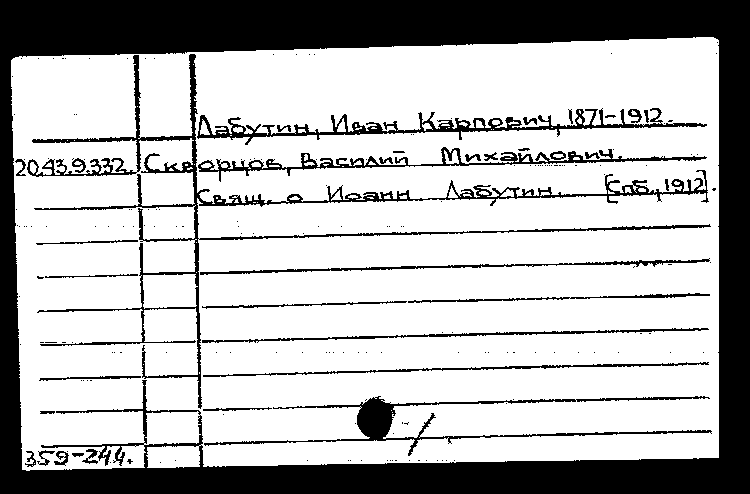 Лабутин, Иван Карпович, 1871-1912.
20.43.9.332. Скворцов, Василий Михайлович.
Свящ. о Иоанн Лабутин. [Спб., 1912].
359-244.